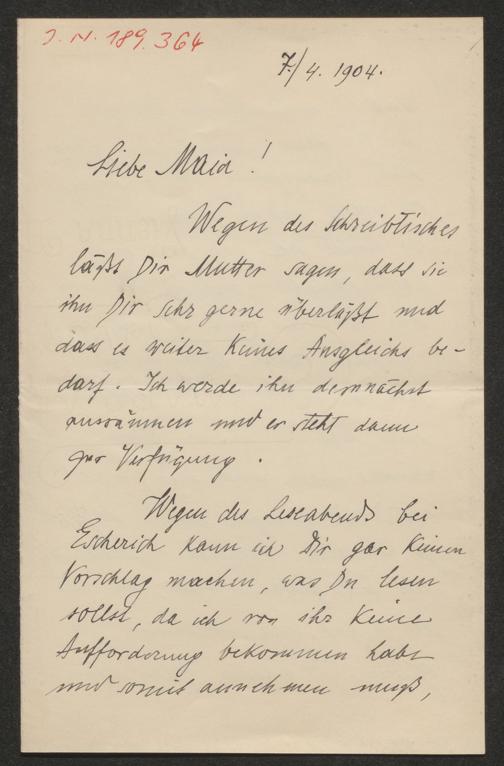 J. N. 189.364
7./4. 1904.
Liebe Maid!
Wegen des Schreibtisches
läßt Dir Mutter sagen, dass sie
ihn Dir sehr gerne überläßt und
dass es weiter keines Ausgleichs be-
darf. Ich werde ihn demnächst
ausräumen und er steht dann
zur Verfügung.
Wegen des Leseabends bei
Escherich kann ich Dir gar keinen
Vorschlag machen, was Du lesen
sollst, da ich von ihr keine
Aufforderung bekommen habe
und somit annehmen muß,